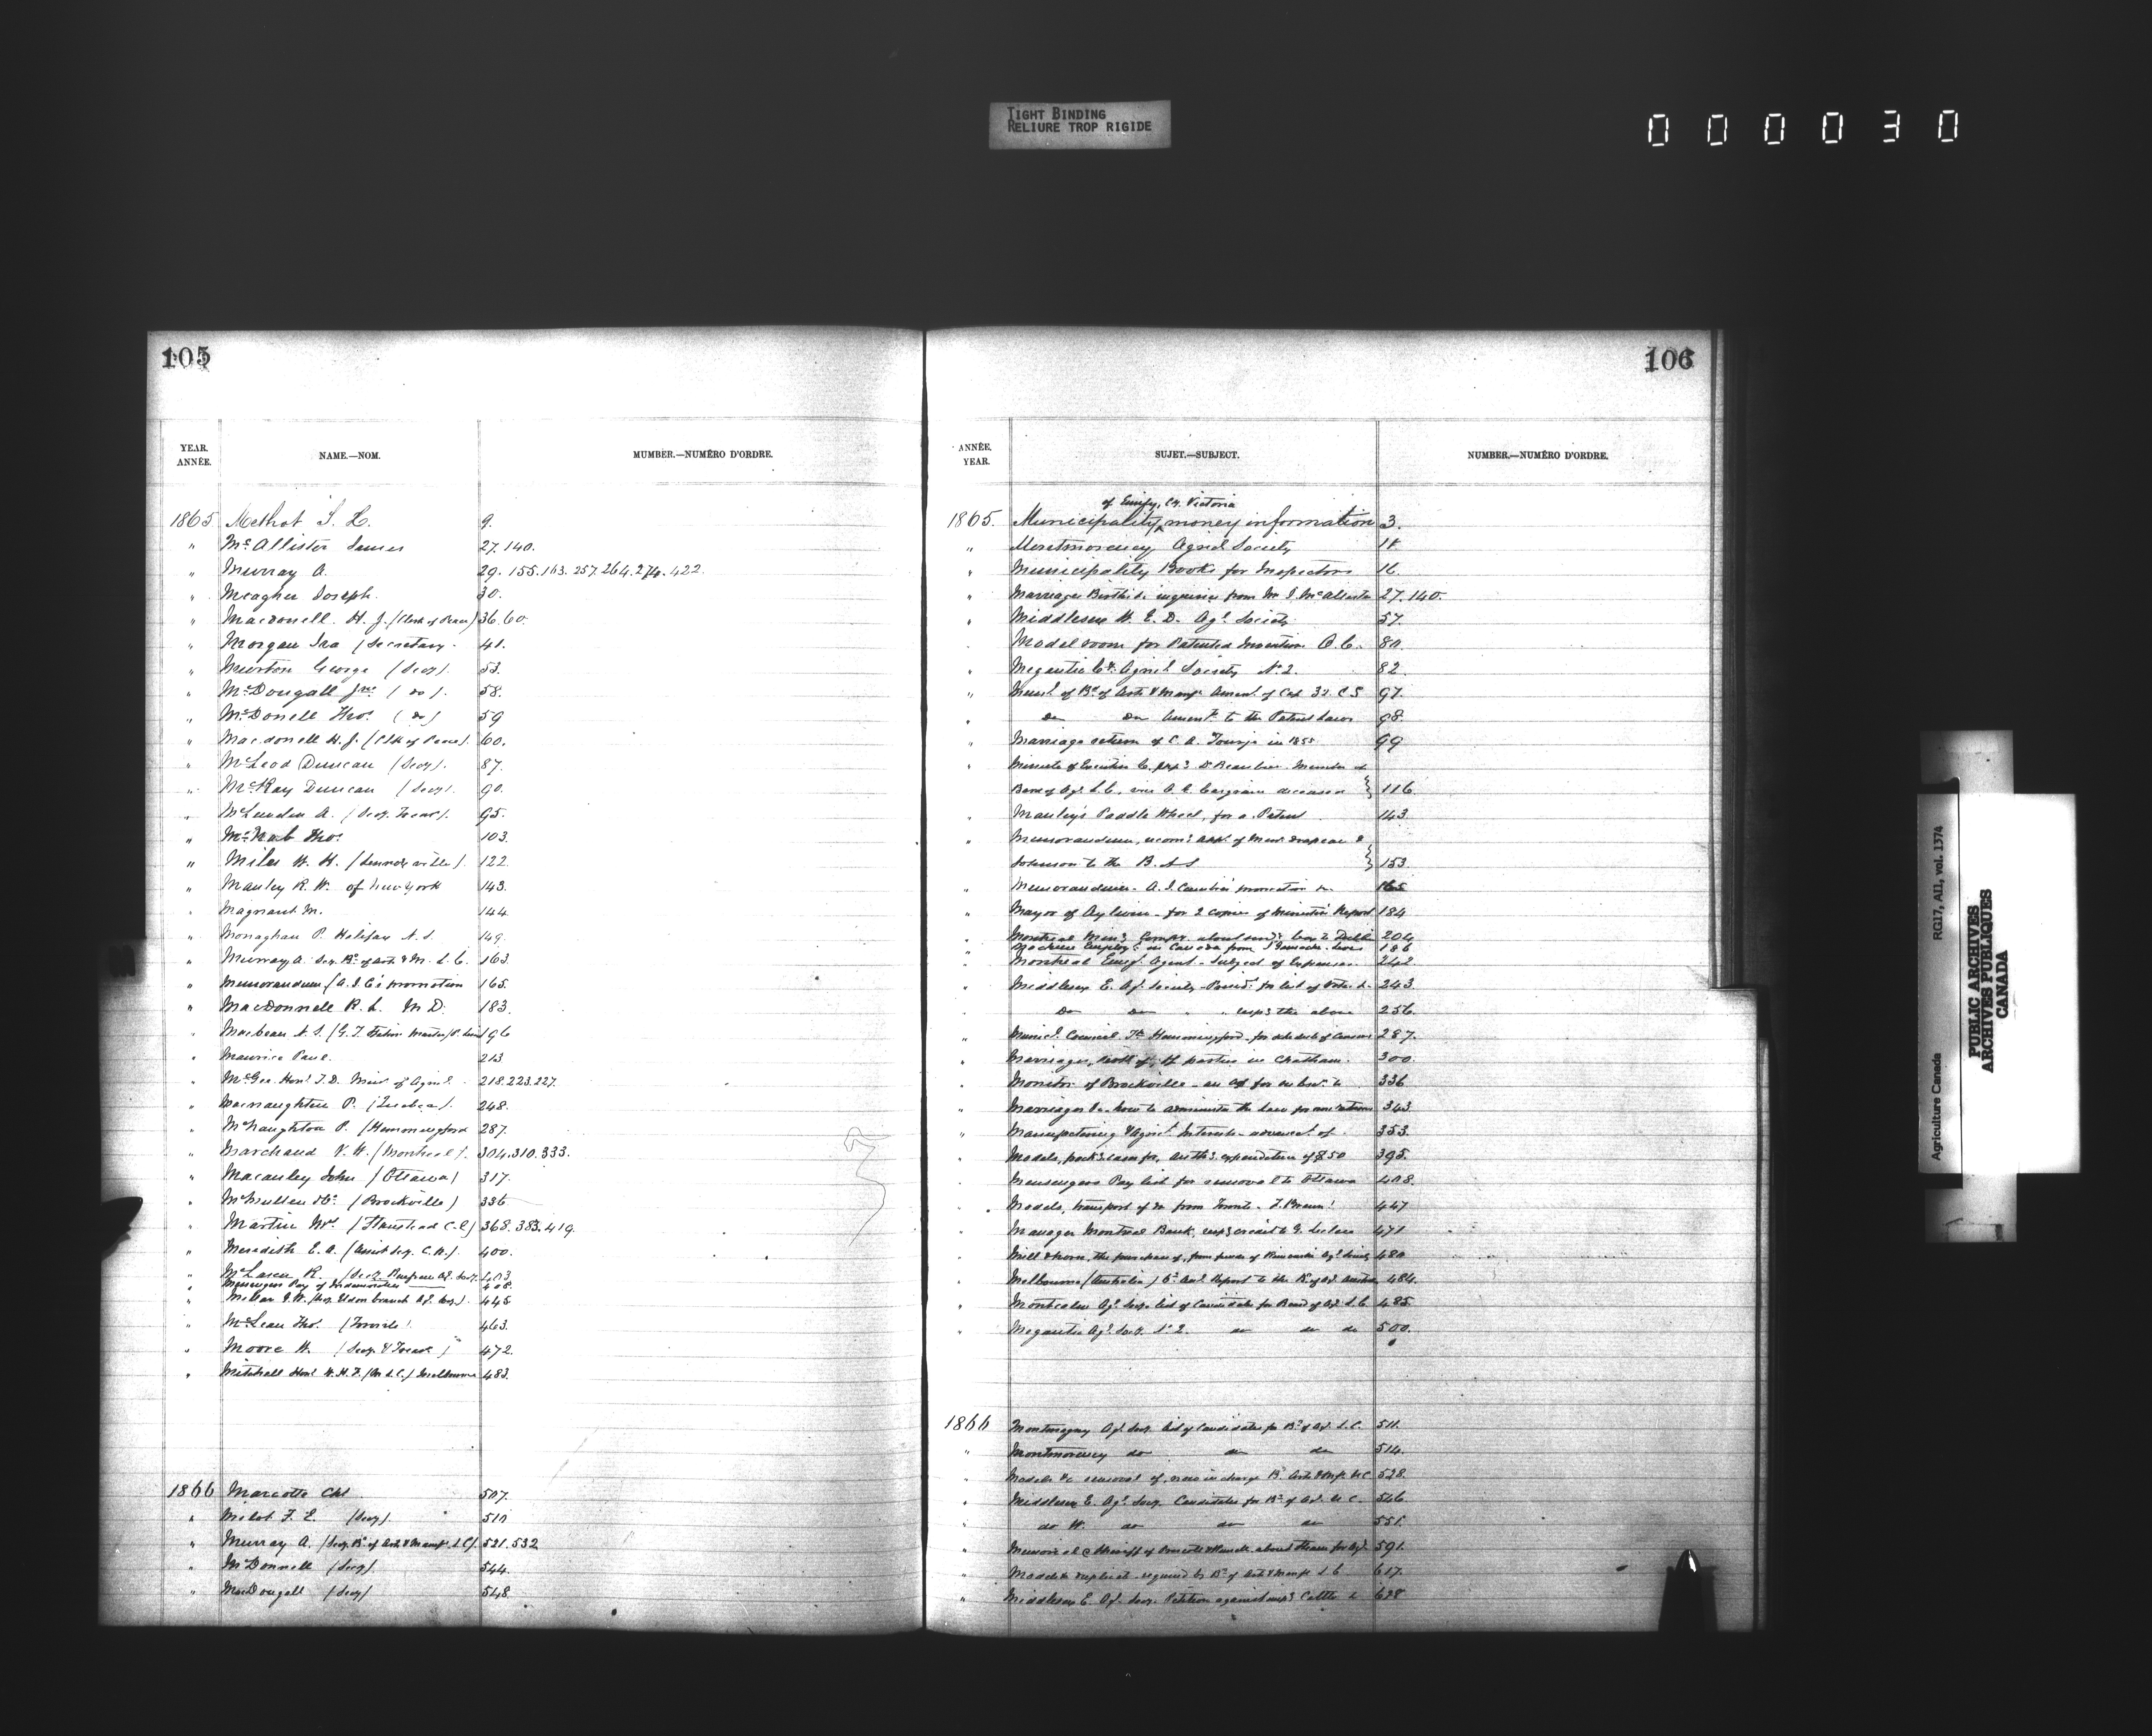 TIGHT BINDING
RELIURE TROP RIGIDE
000030
105
YEAR. ANNÉE. NAME.—NOM. MUMBER.—NUMÉRO D'ORDRE.
1865 Methot S. L. 9.
" McAllister James 27. 140.
" Murray A. 29. 155. 163. 257. 264. 274. 422.
" Meagher Joseph 30.
" Macdonell H. J. (Clerk of Peace) 36. 60.
" Morgan Ira (Secretary. 41.
" Murton George (Secy). 53.
" McDougall Jno. (do). 58.
" McDonell Thos. (do) 59
" Macdonell H. J. (Clk of Peace). 60.
" McLeod Duncan (Secy). 87.
" McKay Duncan (Secy). 90.
" A. (Secy. Treas). 95.
" McNab Thos. 103.
" Miles H. H. (Lennoxville). 122.
" Manley R. W. of New York 143.
" Magnant M. 144.
" Monaghan P. Halifax N. S. 149.
" Murray A. Secy. Bd. of Arts & M. L. C. 163.
" Memorandum (A. J. C's promotion 165.
" MacDonnell R. L. M. D. 183.
" Macbean A. S. (G. T. Station Master) 196
" Maurice Paul. 213
" McGee Honl. T. D. Minr. of Agricl. 218. 223. 227.
" Macnaughton P. (Quebec). 248.
" McNaughton P. (Hemmingford 287.
" Marchand V. H. (Montreal). 304. 310. 333.
" Macauley John (Ottawa) 317.
" McMullen (Brockville) 336
" Martin Wm. (Stanstead C. E) 368. 383. 419.
" Meredith E. A. (Assist Secy. C. W.). 400.
" McLaren R. (Secy. Renfrew Ag. Socy. 403
" Messengers Pay of Indemnities 408.
" J. W. (Secy. branch Ag. Socy.). 445
" McLean Thos. (Toronto). 463.
" Moore W. (Secy. & Treas.) 472.
" Mitchell Honl. W. H. F. (M. L. C.) Melbourne 483.
1866 Marcotte Chs 507.
" Milot F. E. (Secy). 510
" Murray A. (Secy. Bd. of Arts & Manf. L. C). 521. 532
" McDonnell (Secy). 544.
" MacDougall (Secy) 548.
106
ANNÉE. YEAR. SUJET.—SUBJECT. NUMBER.—NUMÉRO D'ORDRE.
of Emily, Co. Victoria
1865. Municipality money information 3.
" Montmorency Agricl Society 14
" Municipality Books for Inspectors 16.
" Marriages Births &c inquiries from Mr J. McAllister 27. 140.
" Middlesex W. E. D. Agl. Society 57.
" Model room for Patented Invention 80.
" Megantic Cty. Agricl. Society No. 2. 82.
" of Bd. of Arts & Manf. Amend. of Cap. 32. C S 97.
" Do Do Amendt. to the Patent Laws 98.
" Marriage return of C. A. in 1855. 99
" Minute of Executive C. Dr Beaubien Member of
Board of Agl. L. C., vice deceased } 116.
" Manley's Paddle Wheel, for a Patent 143
" Memorandum, recomg. appt. of Messrs Drapeau &
Johnson to the B. A S } 153.
" Memorandum - A. J. Cambie's promotion &c. 165
" Mayor of Aylwin - for 2 copies of Minister's Report 184
" Montreal Compy. about to Dublin 204
" employt. in Canada from 186
" Montreal Emigt. Agent - Subject of Expenses 242
" Middlesex E. Agl. Society - for list of 243.
" Do Do " 256.
" Municl. Council Hemmingford - for schedule of Census 287.
" Marriages, of parties in Chatham. 300.
" Monitor of Brockville - 336
" Marriages &c how to administer the law 343
" Manufacturing & Agricl. Interests - advancet. of 353.
" Models, for, authg. expenditure of $50 395.
" Messengers Pay list for removal to Ottawa 408.
" Models, transport of &c from Toronto - 447
" Manager Montreal Bank, credit to 471
" the purchase of, from of Rimouski Agl. Society 480
" Melbourne (Australia) Report to the Bd. of Agl. 484.
" Montcalm Agl. Socy. list of Candidates for Board of Agl. L. C. 485.
" Megantic Agl. Socy. No. 2. do do do 500.
1866 Montmagny Agl. Socy. list of Candidates for Bd. of Agl. L. C. 511.
" Montmorency do do do 514.
" Models &c removal of, now in charge Bd. Arts & Manf. U C 528.
" Middlesex E. Agl. Socy. Candidates for Bd. of Agl. U C. 546
" do W. do do do 551.
" 591.
" Models required by Bd. of Arts & Manf. L C 617.
" Middlesex E. Agl. Socy. Petition against Cattle 628
Agriculture Canada RG17, AII, vol. 1374
PUBLIC ARCHIVES
ARCHIVES PUBLIQUES
CANADA